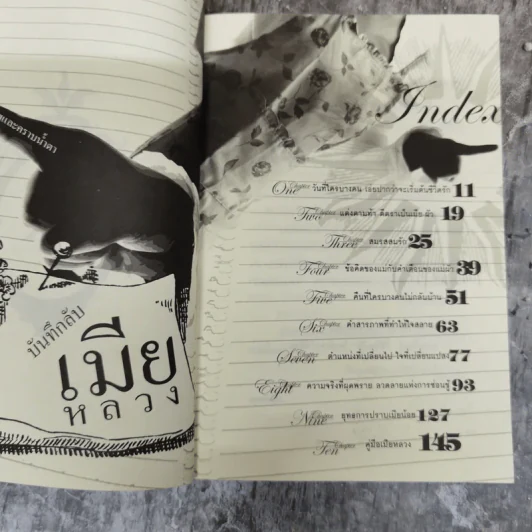 และคราบน้ำตา
บันทึกลับ
เมีย
หลวง
Index
One Chapter วันที่ใครบางคน เอ่ยปากว่าจะเริ่มต้นชีวิตรัก 11
Two Chapter แต่งตามตำ 19
Three Chapter สมรสสมรัก 25
Four Chapter ข้อคิดของแม่กับคำเตือนของแม่ผัว 39
Five Chapter คืนที่ใครบางคนไม่กลับบ้าน 51
Six Chapter คำสารภาพที่ทำให้ใจสลาย 63
Seven Chapter ตำแหน่งที่เปลี่ยนไป ใจที่เปลี่ยนแปลง 77
Eight Chapter ความจริงที่ผุดพราย ลวดลายแห่งการซ่อนชู้ 93
Nine Chapter ยุทธการปราบเมียน้อย 127
Ten Chapter คู่มือเมียหลวง 145